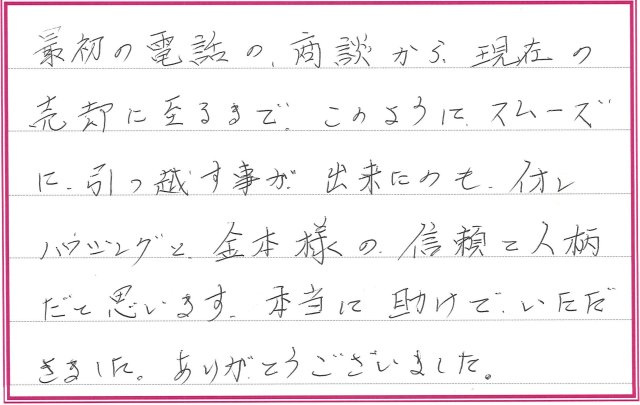 最初の電話の、商談から、現在の
売却に至るまで、このように、スムーズ
に、引っ越す事が、出来たのも、イオレ
ハウジングと、金本様の、信頼と人柄
だと思います。本当に助けて、いただ
きました。ありがとうございました。